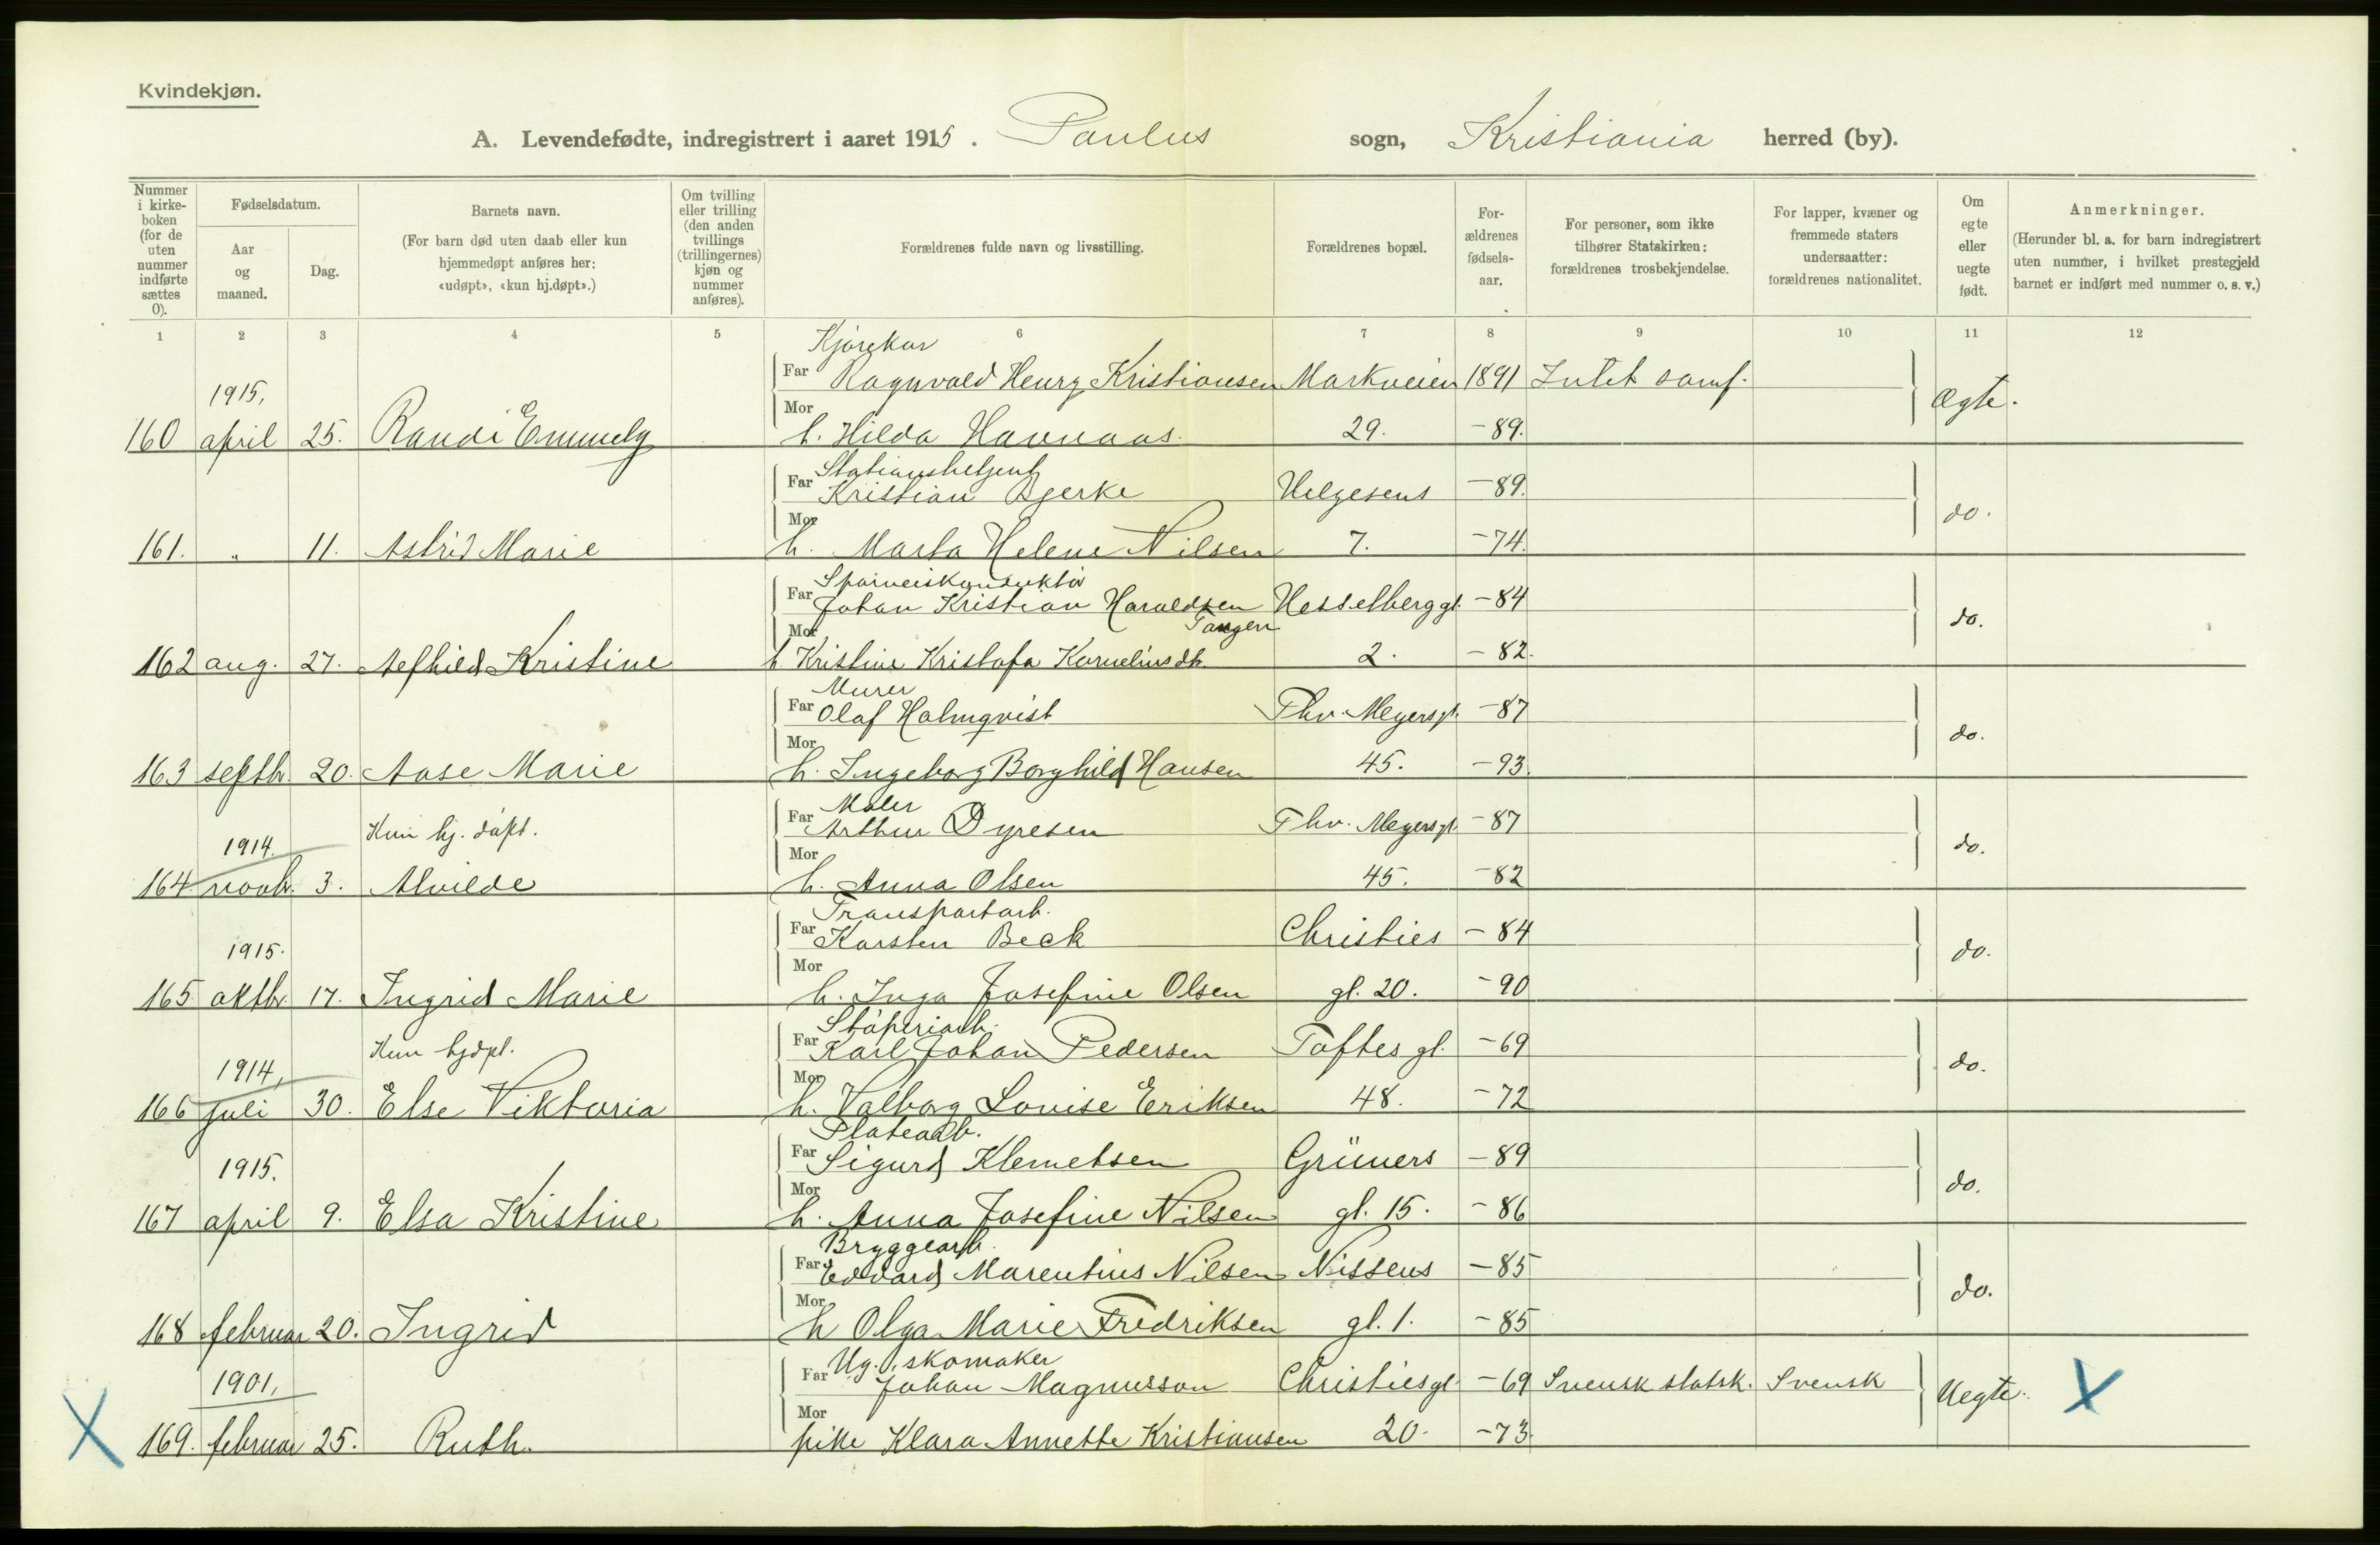 Kvindekjøn.
A. Levendefødte, indregistrert i aaret 1915. Paulus sogn, Kristiania herred (by).
Nummer i kirke-boken (for de uten nummer indførte sættes 0).
Fødselsdatum.
Aar og maaned.
Dag.
Barnets navn.
(For barn død uten daab eller kun hjemmedøpt anføres her: «udøpt», «kun hj.døpt».)
Om tvilling eller trilling (den anden tvillings (trillingernes) kjøn og nummer anføres).
Forældrenes fulde navn og livsstilling.
Forældrenes bopæl.
For-ældrenes fødsels-aar.
For personer, som ikke tilhører Statskirken: forældrenes trosbekjendelse.
For lapper, kvæner og fremmede staters undersaatter: forældrenes nationalitet.
Om egte eller uegte født.
Anmerkninger.
(Herunder bl. a. for barn indregistrert uten nummer, i hvilket prestegjeld barnet er indført med nummer o. s. v.)
1 2 3 4 5 6 7 8 9 10 11 12
Kjørekar
Far Ragnvald Henry Kristiansen Markveien 1891 Intet samf.
1915, Ægte.
Mor
160 april 25. Randi Emmely h. Hilda Havnaas. 29. -89.
Stationsbetjent
Far Kristian Bjerke Helgesens -89.
do.
Mor
161. " 11. Astrid Marie h. Marta Helene Nilsen 7. -74.
Sporveiskonduktør
Far Johan Kristian Haraldsen Hesselberg gt. -84
Tangen do.
Mor
162 aug. 27. Aefhild Kristine h Kristine Kristofa Korneliusdt. 2. -82.
Murer
Far Olaf Holmqvist Thv. Meyersgt. -87
do.
Mor
163 septbr. 20. Aase Marie h. Ingeborg Borghild Hansen 45. -93.
Maler
Far Arthur Dyresen Thv. Meyersgt. -87
Kun hj. døpt.
1914. do.
Mor
164 novbr. 3. Alvilde h. Anna Olsen 45. -82
Transportarb.
Far Karsten Beck Christies -84
1915. do.
Mor
165 oktbr. 17. Ingrid Marie h. Inga Josefine Olsen gt. 20. -90
Støperiarb.
Far Karl Johan Pedersen Toftes gt. -69
Kun hjdpt.
1914, do.
Mor
166 juli 30. Else Viktoria h. Valborg Lovise Eriksen 48. -72
Platearb.
Far Sigurd Klemetsen Grüners -89
1915. do.
Mor
167 april 9. Elsa Kristine h. Anna Josefine Nilsen gt. 15. -86
Bryggearb.
Far Edvard Marentius Nilsen Nissens -85
do.
Mor
168 februar 20. Ingrid h Olga Marie Fredriksen gt. 1. -85
Ug. skomaker
Far Johan Magnusson Christiesgt -69 Svensk statsk. Svensk
1901, Uegte. X
Mor
X 169. februar 25. Ruth. pike Klara Annette Kristiansen 20. -73.